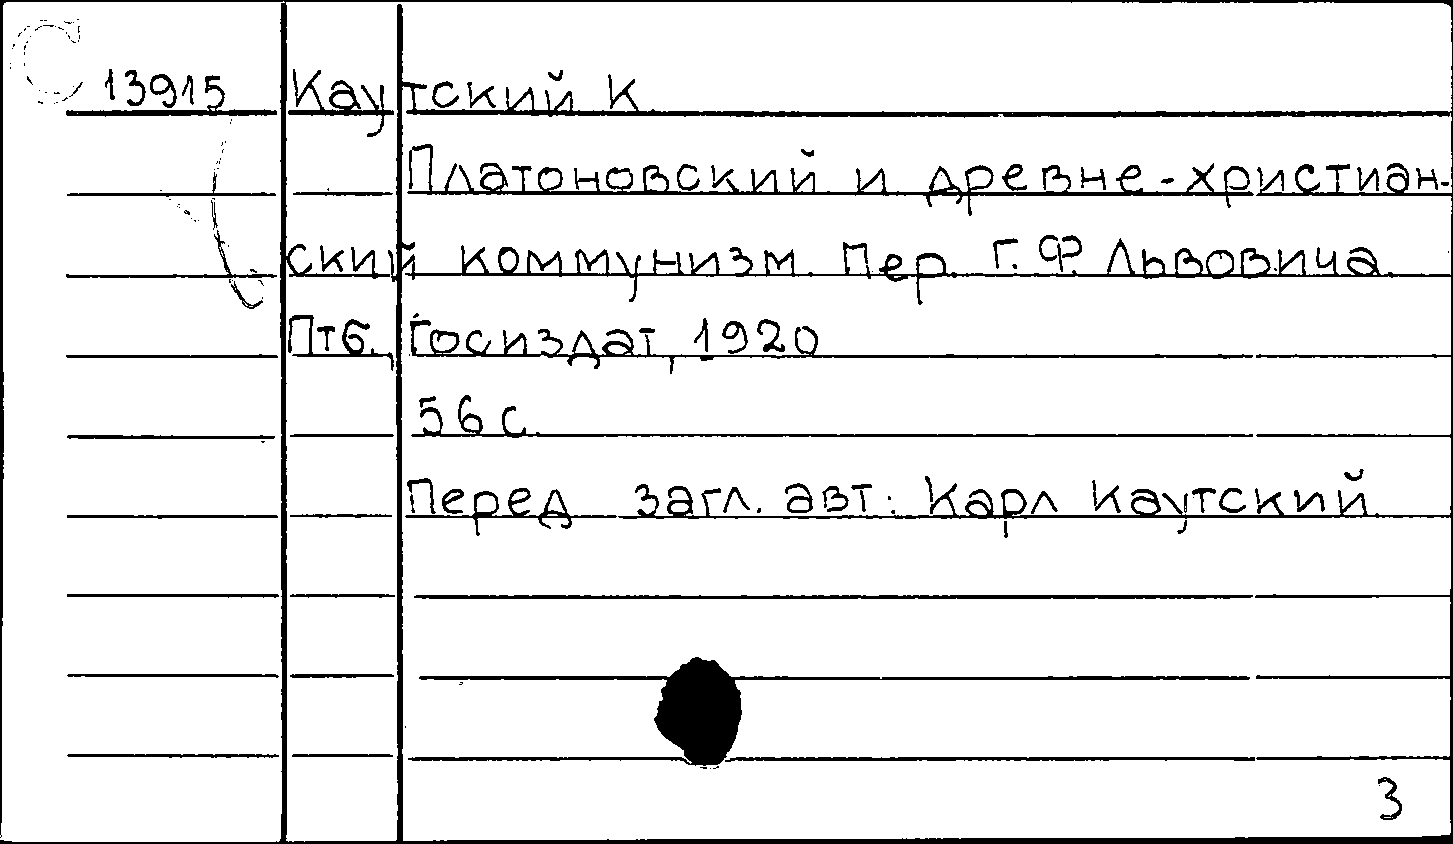 С
13915 Каутский К.
Платоновский и древне-христиан-
ский коммунизм. Пер. Г. Ф. Львовича.
Птб., Госиздат, 1920
56 с.
Перед загл. авт.: Карл Каутский.
3